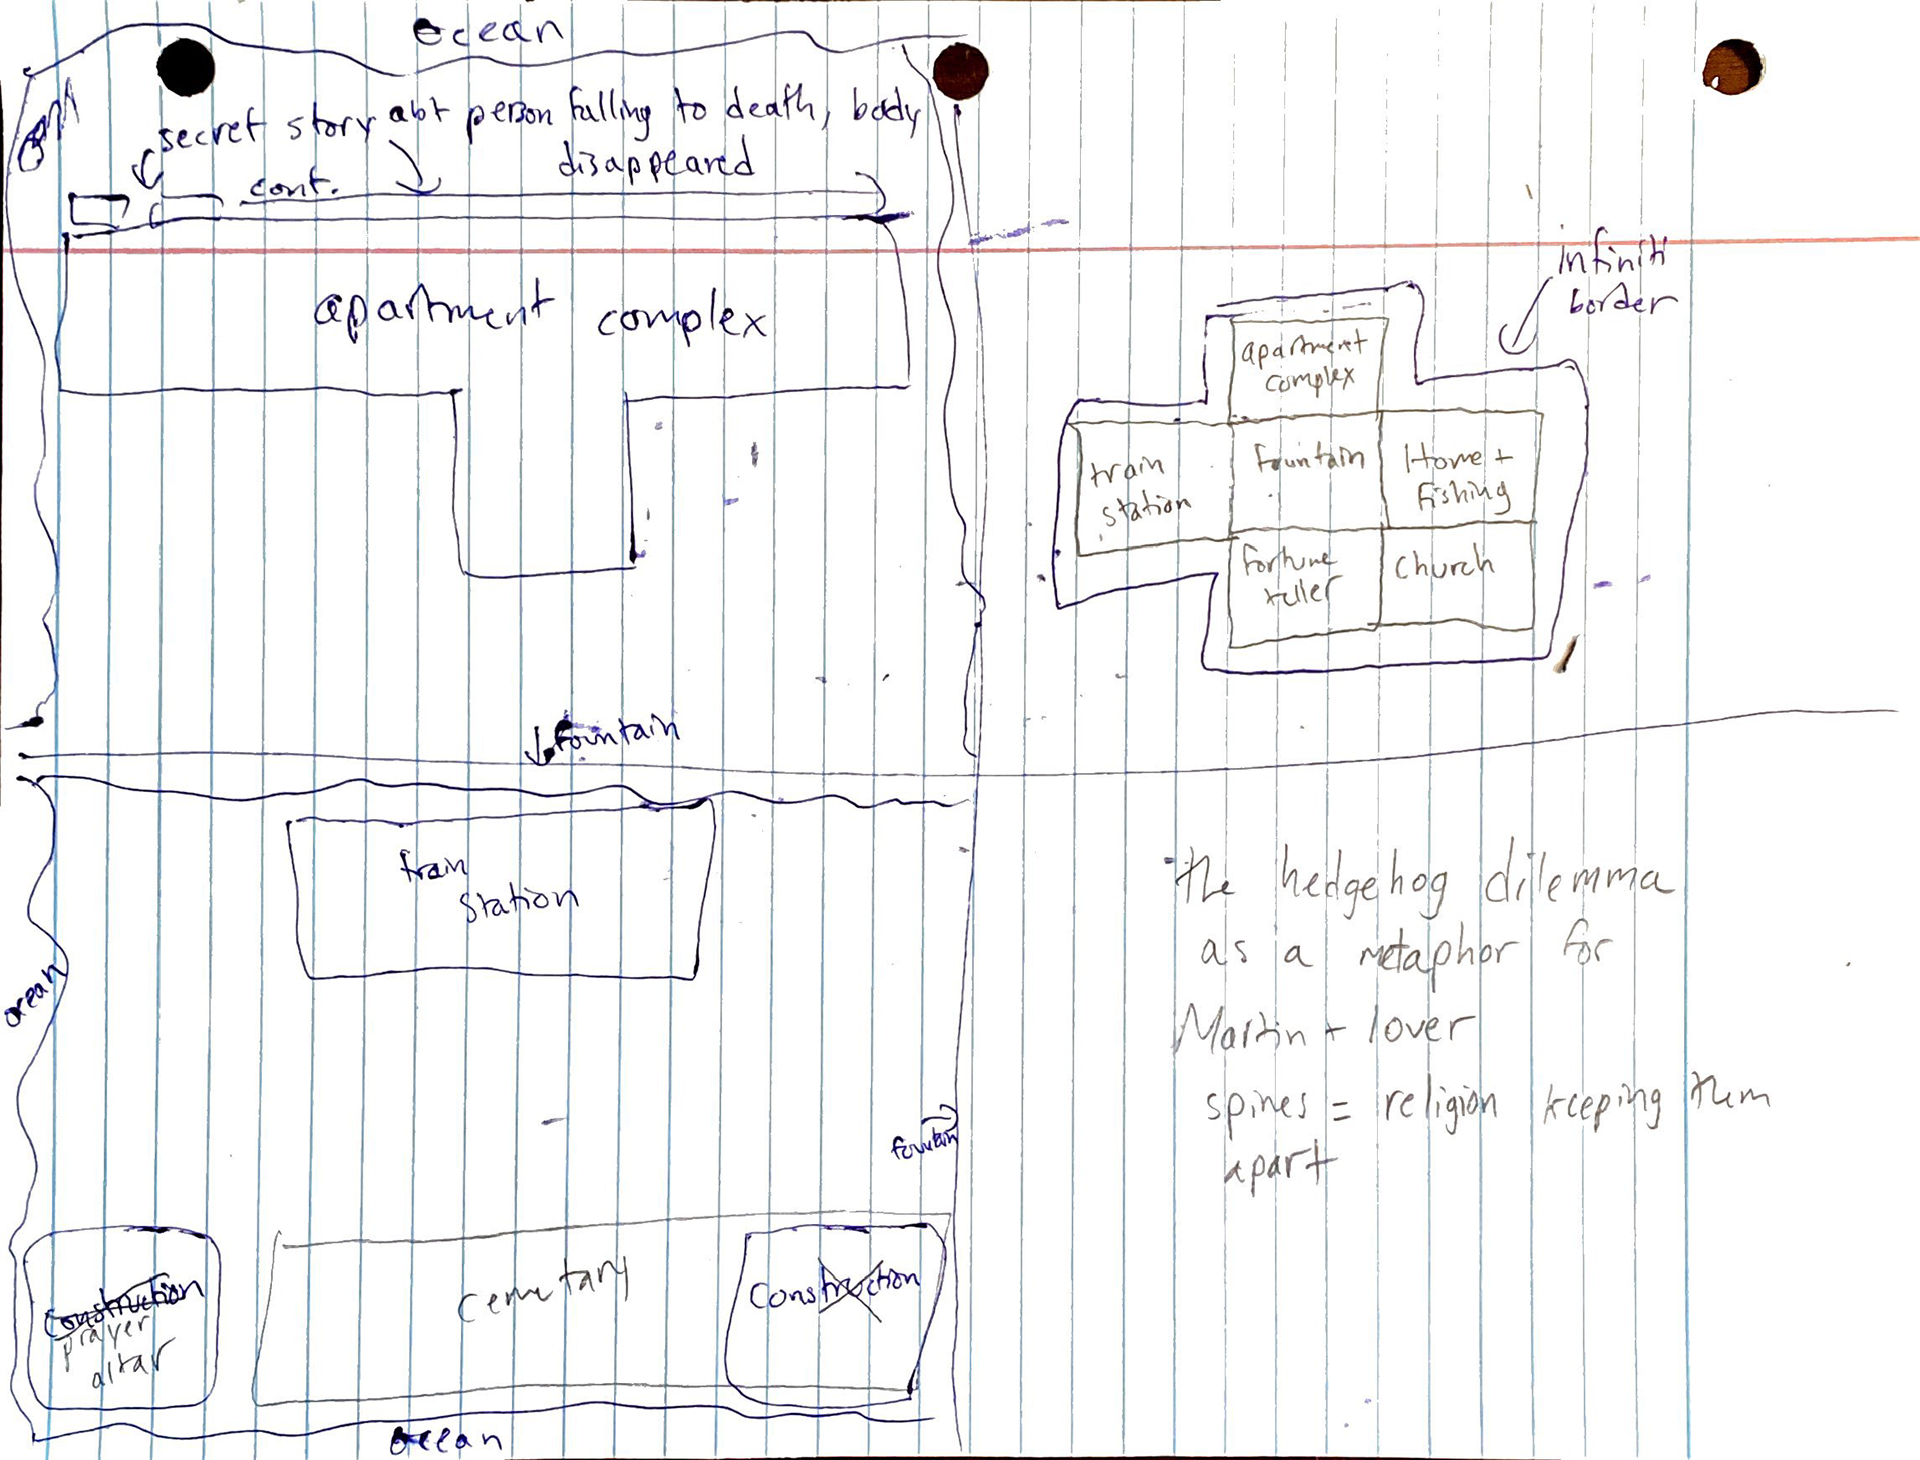 ocean
ocean
secret story abt person falling to death, body
disappeared
cont.
apartment complex
fountain
infiniti
border
apartment
complex
train
station
fountain
Home +
fishing
fortune
teller
church
train
station
ocean
fountain
construction
prayer
altar
cemetary
construction
ocean
the hedgehog dilemma
as a metaphor for
Martin + lover
spines = religion keeping them
apart